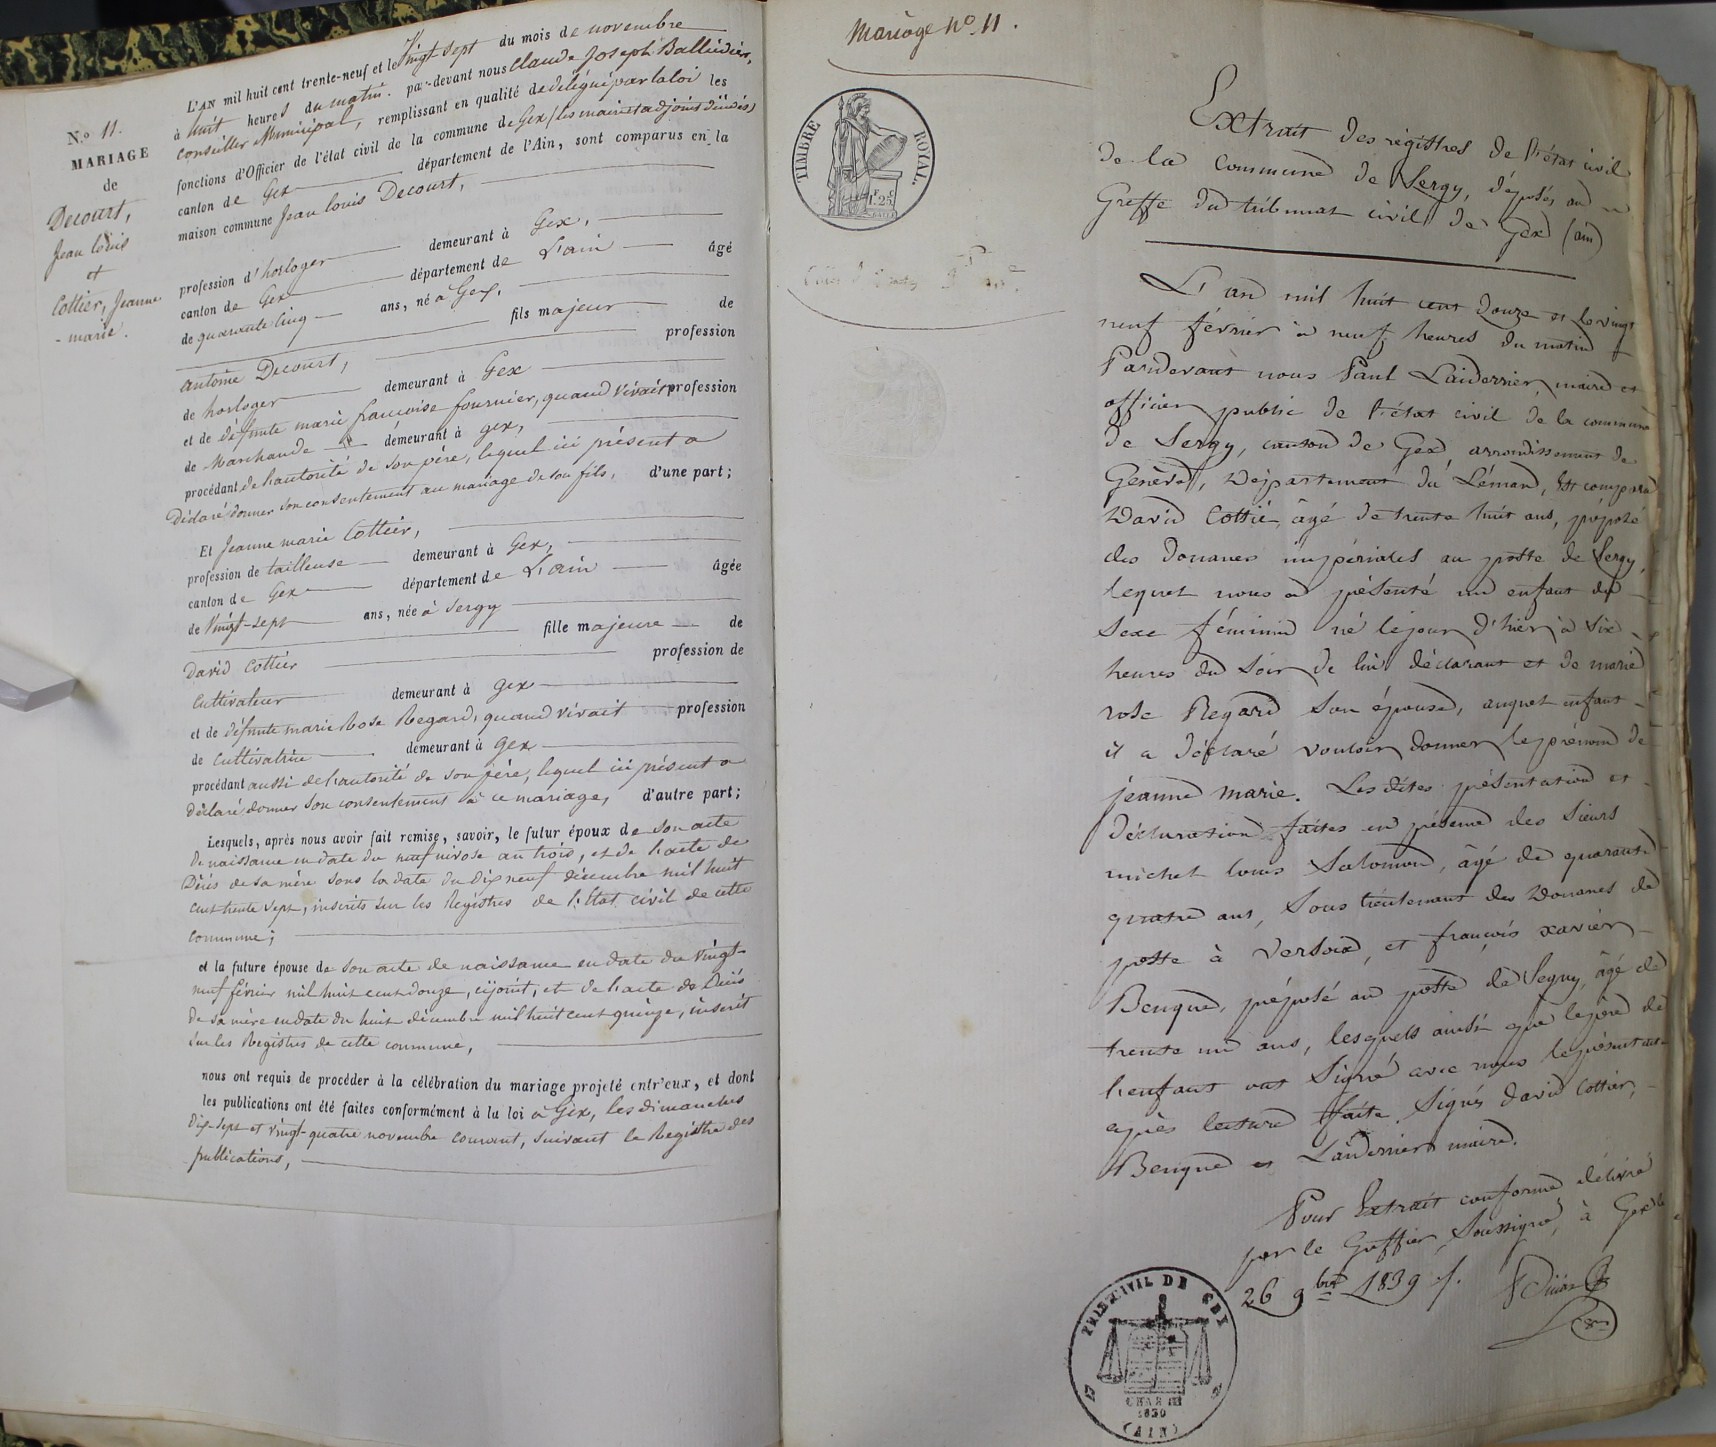 N.º 11.
MARIAGE
de
Decourt,
Jean louis
et
Cottier, Jeanne
-marie.
L'AN mil huit cent trente-neuf et le Vingt-sept du mois de novembre
à huit heures du matin. par-devant nous Claude Joseph
Conseiller Municipal, remplissant en qualité de délégué par la loi les
fonctions d'Officier de l'état civil de la commune de Gex (les maire et adjoint décédés)
canton de Gex département de l'Ain, sont comparus en la
maison commune Jean louis Decourt,
profession d'horloger demeurant à Gex,
canton de Gex département de L'ain âgé
de quarante cinq ans, né à Gex,
fils majeur de
antoine Decourt, profession
de horloger demeurant à Gex
et de défunte marie françoise fournier, quand vivait profession
de Marchande demeurant à gex,
procédant de l'autorité de son père, lequel ici présent a
Déclaré donner son consentement au mariage de son fils, d'une part;
Et Jeanne marie Cottier,
profession de tailleuse demeurant à Gex,
canton de Gex département de L'ain âgée
de Vingt-sept ans, née à Sergy
fille majeure de
David Cottier profession de
Cultivateur demeurant à gex
et de défunte marie Rose Regard, quand vivait profession
de Cultivatrice demeurant à gex
procédant aussi de l'autorité de son père, lequel ici présent a
Déclaré donner son consentement à ce mariage, d'autre part;
Lesquels, après nous avoir fait remise, savoir, le futur époux de son acte
de naissance en date du neuf nivose an trois, et de l'acte de
Décès de sa mère sous la date du dix neuf décembre mil huit
cent trente sept, inscrits sur les Registres de l'Etat civil de cette
commune;
et la future épouse de son acte de naissance en date du vingt-
neuf février mil huit cent douze, cijoint, et de l'acte de Décès
de sa mère en date du huit décembre mil huit cent quinze, inscrit
sur les Registres de cette commune,
nous ont requis de procéder à la célébration du mariage projeté entr'eux, et dont
les publications ont été faites conformément à la loi à Gex, les dimanches
Dix-sept et vingt-quatre novembre courant, suivant le Registre des
publications,
Mariage Nº 11.
TIMBRE ROYAL.
1F. 25C
Extrait des régistres de l'état civil
de la Commune de Sergy, déposés au
Greffe du tribunal civil de Gex (ain)
L'an mil huit cent Douze et le vingt
neuf février à neuf heures du matin
Pardevant nous Paul Laiderrier maire et
officier public de l'état civil de la commune
de Sergy, canton de Gex arrondissement de
Genève, Département du Léman, Est comparu
David Cottié, âgé de trente huit ans, préposé
des Douanes impériales au poste de Sergy,
lequel nous a présenté un enfant du
Sexe féminin né le jour d'hier à six
heures du soir de lui déclarant et de marie
rose Regard son épouse, auquel enfant
il a déclaré vouloir donner le prénom de
jeanne marie. Les dites présentation et
déclaration faites en présence des Sieurs
michel louis Salomon, âgé de quarante
quatre ans, Sous lieutenant des Douanes de
poste à Versoix, et françois xavier
Benque, préposé au poste de Segny, âgé de
trente un ans, lesquels ainsi que le père de
l'enfant ont Signé avec nous le présent acte
après lecture faite. Signés david Cottier,
Benque et Laiderrier maire.
Pour Extrait conforme délivré
par le Greffier, Soussigné, à Gex le
26 9bre 1839.
TRIB. CIVIL DE GEX
CHARTE
1830
(AIN)